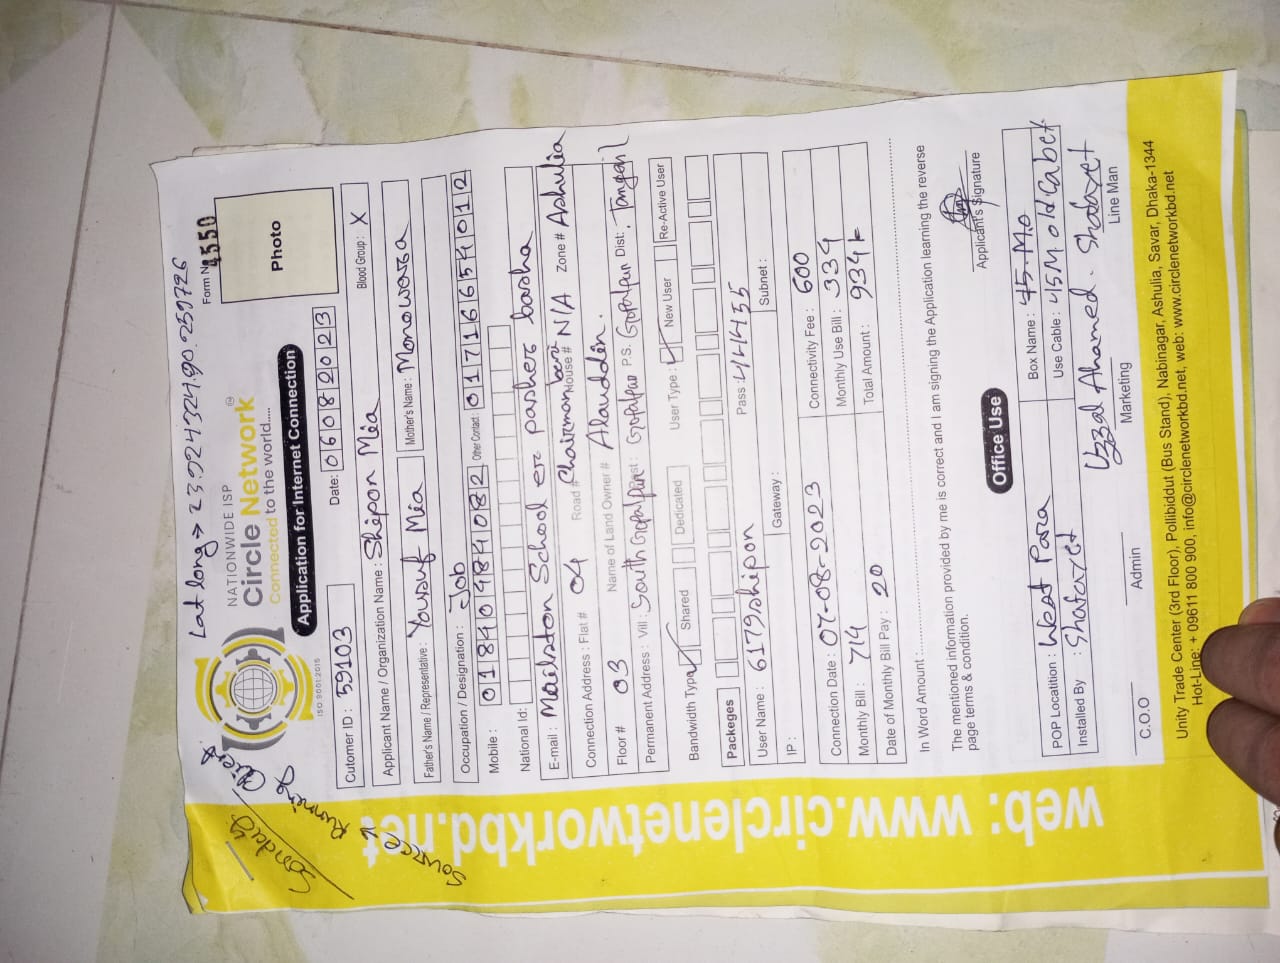 Lat long → 23.924324,90.259726
NATIONWIDE ISP
Circle Network
Connected to the world.....
ISO 9001:2015
Form No 4550
Photo
Application for Internet Connection
Cutomer ID : 59103 Date: 06082023
Applicant Name / Organization Name : Shipon Mia Blood Group : X
Father's Name / Representative : Yousuf Mia Mother's Name : Monowara
Occupation / Designation : Job
Mobile : 01840984082 Other Contact: 01716654012
National Id:
E-mail : Mailston School er pasher basha
Connection Address : Flat # 04 Road # Chairman bari House # N/A Zone # Ashulia
Floor # 03 Name of Land Owner # Alauddin.
Permanent Address : Vill : South Gopalpur Post : Gopalpur P.S. Gopalpur Dist: Tangail
Bandwidth Type Shared Dedicated User Type : New User Re-Active User
Packeges
User Name : 6179shipon Pass : 444455
IP : Gateway : Subnet :
Connection Date : 07-08-2023 Connectivity Fee : 600
Monthly Bill : 714 Monthly Use Bill : 334
Date of Monthly Bill Pay : 20 Total Amount : 934
In Word Amount
The mentioned information provided by me is correct and I am signing the Application learning the reverse
page terms & condition.
Applicant's Signature
Office Use
POP Locatition : West Para Box Name : 45.M.o
Installed By : Shafayet Use Cable : 45M old Cabel
Uzzal Ahamed. Shafayet
C.O.O Admin Marketing Line Man
Unity Trade Center (3rd Floor), Pollibiddut (Bus Stand), Nabinagar, Ashulia, Savar, Dhaka-1344
Hot-Line: + 09611 800 900, info@circlenetworkbd.net, web: www.circlenetworkbd.net
web: www.circlenetworkbd.net
Running Client
Source